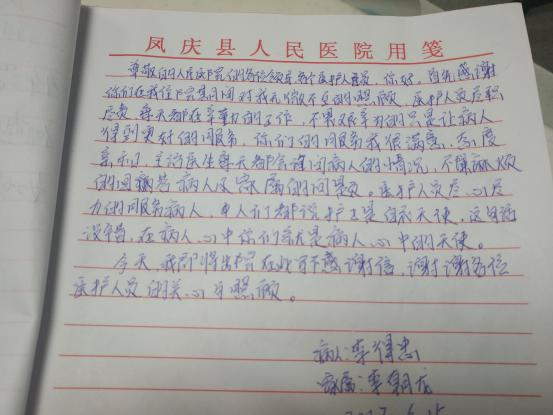 凤庆县人民医院用笺
尊敬的人民医院的各位领导各个医护人员,你好,首先感谢
你们在我住院期间对我无微不至的照顾,医护人员尽职
尽责,每天都在辛勤的工作,不畏艰辛为的只是让病人
得到更好的服务,你们的服务我很满意,态度
亲切,主治医生每天都会询问病人的情况,不厌麻烦
的回答病人及家属的问题。医护人员尽心尽
力的服务病人,人们都说护士是白衣天使,这句话
没错,在病人心中你们就是病人心中的天使。
今天,我即将出院在此写下感谢信,谢谢各位
医护人员的关心与照顾。
病人:李得忠
家属:李朝龙